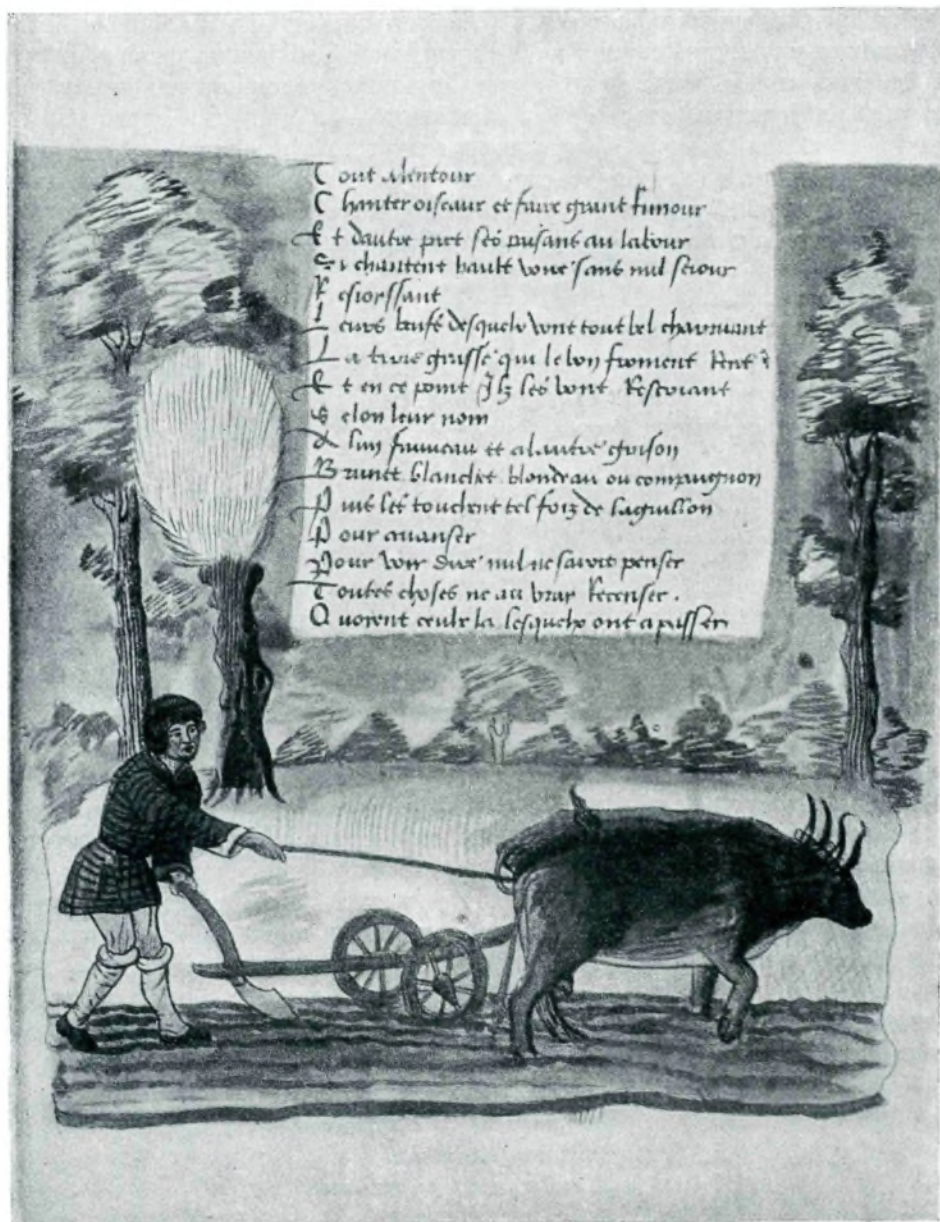 Tout alentour
Chanter oiseaux et faire grant
Et dautre part ses paisans au labour
Si chantent hault voire sans nul seiour
Resiorssant
Leurs beufz desquelx vont tout bel charruiant
La terre grasse qui le bon froment Rent
Et en ce point Ilz les vont Rescriant
Selon leur nom
A lun fauveau et alautre grison
Brunet blanchet blondeau ou compaignon
Puis les touchent tel foiz de laguillon
Pour avanser
Pour voir dire nul ne savroit penser
Toutes choses ne au vray Recenser
Quoient ceulx la lesquelx ont a passer